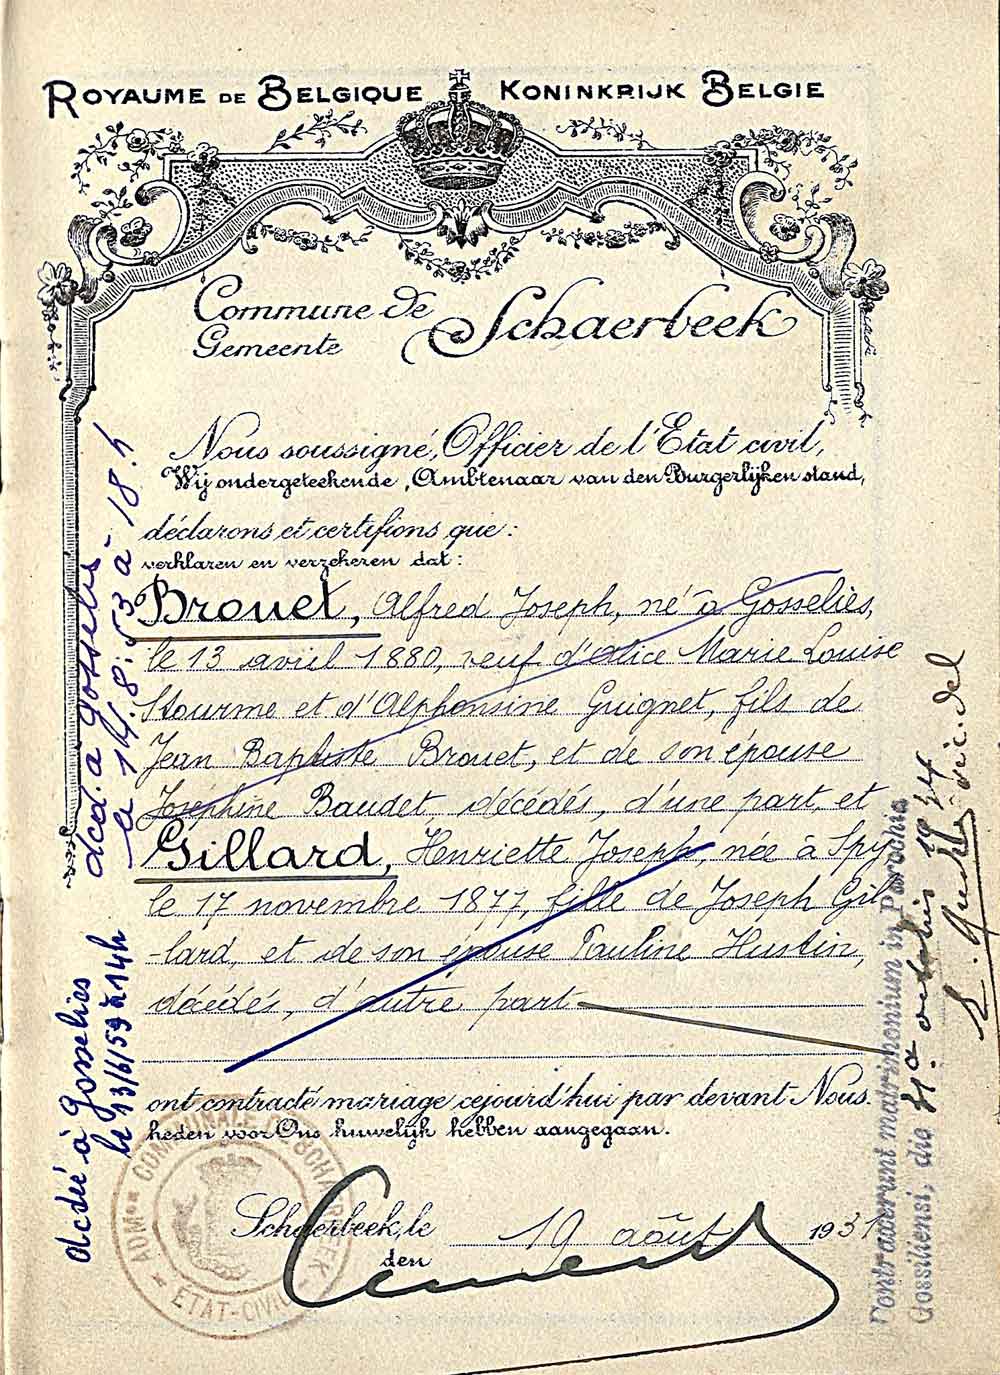 ROYAUME DE BELGIQUE KONINKRIJK BELGIE
Commune de Schaerbeek
Gemeente
Nous soussigné, Officier de l'Etat civil,
Wij ondergeteekende, Ambtenaar van den Burgerlijken stand,
déclarons et certifions que :
verklaren en verzekeren dat :
Brouet, Alfred Joseph, né à Gosselies,
le 13 avril 1880, veuf d'Alice Marie Louise
Stourme et d'Alphonsine Guignet, fils de
Jean Baptiste Brouet, et de son épouse
Joséphine Baudet, décédés, d'une part, et
Gillard, Henriette Joseph, née à Spy
le 17 novembre 1877, fille de Joseph Gil-
lard, et de son épouse Pauline Hustin,
décédés, d'autre part
ont contracté mariage cejourd'hui par devant Nous.
heden voor Ons huwelijk hebben aangegaan.
Schaerbeek, le 19 août 1931
den
ADM COMMUNALE DE SCHAERBEEK
ETAT-CIVIL
dcd. a Gosselies
à 18.h
décédé à Gosselies
le 13/6/59 à 14h
Contraxerunt matrimonium in Parochia
Gossiliensi, die octobris